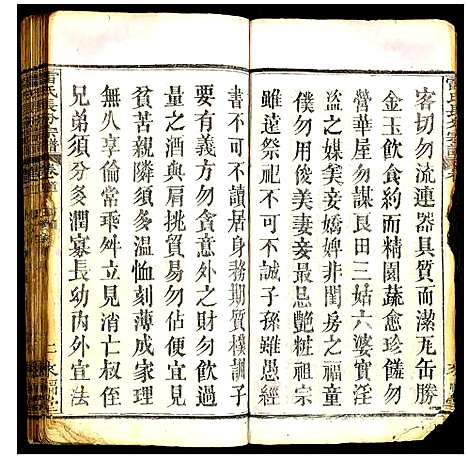 客切勿流連器具質而潔瓦缶勝
金玉飲食約而精園蔬愈珍饈勿
營華屋勿謀良田三姑六婆實淫
盜之媒美妾嬌婢非閨房之福童
僕勿用俊美妻妾最忌艷粧祖宗
雖遠祭祀不可不誠子孫雖愚經
書不可不讀居身務期質樸訓子
要有義方勿貪意外之財勿飲過
量之挑貿易勿佔便宜見
貧苦親隣須多溫恤刻薄成家理
無久享倫常乖舛立見消亡叔侄
兄弟須分多潤寡長幼內外宜法
氏長分宗譜